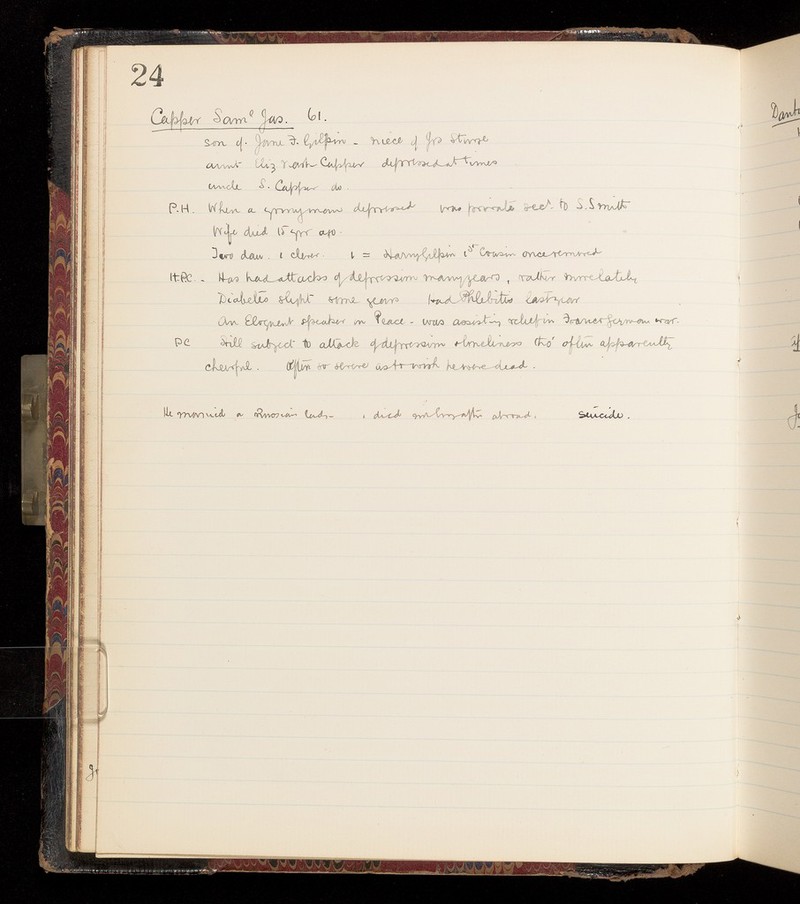 24
Capper Saml Jas. 61.
son of Jane F. Gilpin - niece of Jos Sturge
aunt Eliz Capper depressed at times
uncle S. Capper do
P.H. When a young man depressed was private secy. to S. Smith
Wife died 15 yr ago.
Two dau. 1 clever 1 = Harry Gilpin 1st Cousin once removed
H.P.C. - Has had attacks of depression many years, rather more lately
Diabetes slight some years had Phlebitis last year
An Eloquent speaker on Peace - was assisting relief in Franco German war.
PC Still subject to attack of depression & loneliness tho' often apparently
cheerful. Often so severe as to wish he were dead.
He married a Russian lady - & died not long after abroad. Suicide.